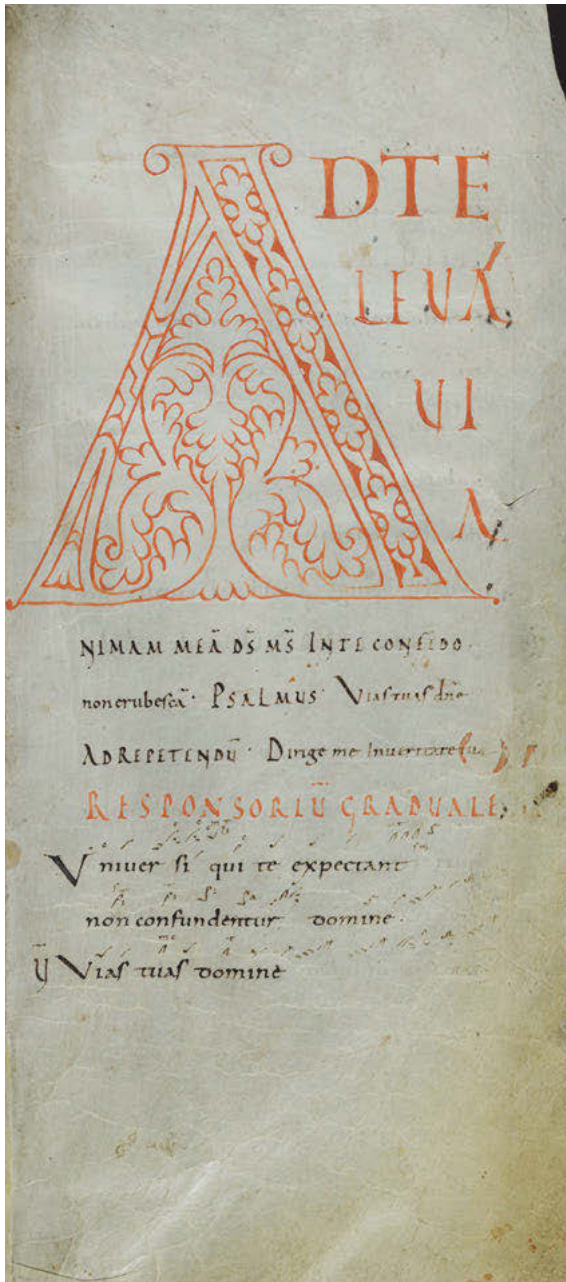 AD TE
LEVA
VI
A
NIMAM MEĀ DS̄ MS̄ IN TE CONFIDO·
non erubescā· PSALMUS· Vias tuas dn̄e
AD REPETENDŪ· Dirige me In veritate tua
RESPONSORIŪ GRADUALE;
Univer si qui te expectant
non confundentur domine·
V̄ Vias tuas domine